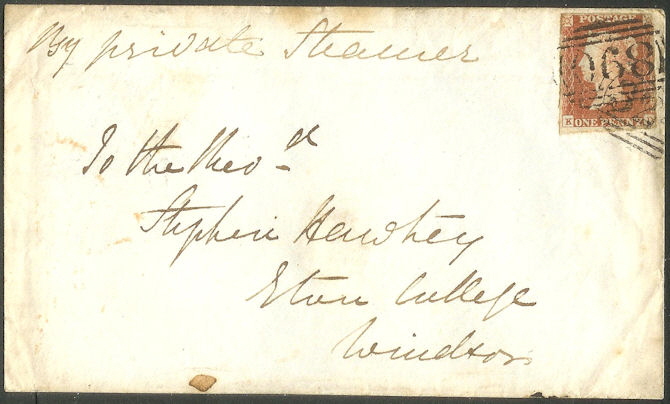 By private Steamer
To the Revd
Stephen Hawtrey
Eton College
Windsor
POSTAGE
K ONE PENNY